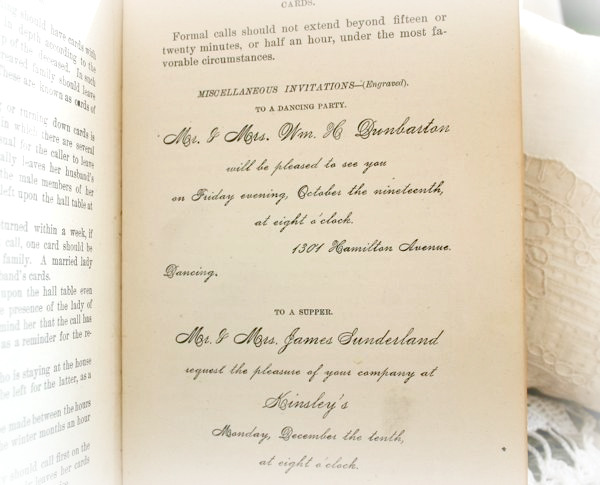 should have cards with
in depth according to the
of the deceased. In such
family should leave
These are known as cards of
or turning down cards is
in which there are several
for the caller to leave
leaves her husband's
the male members of her
left upon the hall table at
within a week, if
call, one card should be
family. A married lady
cards.
upon the hall table even
presence of the lady of
her that the call has
as a reminder for the re-
is staying at the house
be left for the latter, as a
made between the hours
winter months an hour
should call first on the
leaves her cards
CARDS.
Formal calls should not extend beyond fifteen or
twenty minutes, or half an hour, under the most fa-
vorable circumstances.
MISCELLANEOUS INVITATIONS—(Engraved).
TO A DANCING PARTY.
Mr. & Mrs. Wm. H Dunbarton
will be pleased to see you
on Friday evening, October the nineteenth,
at eight o'clock.
1301 Hamilton Avenue.
Dancing.
TO A SUPPER.
Mr. & Mrs. James Sunderland
request the pleasure of your company at
Kinsley's
Monday, December the tenth,
at eight o'clock.